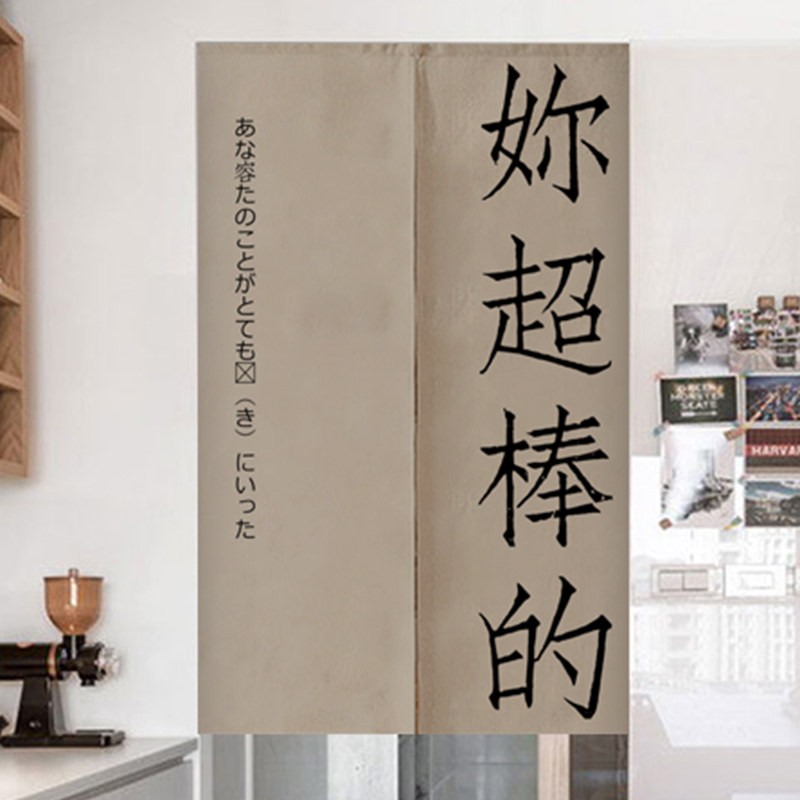 妳超棒的
あな容たのことがとても☒（き）にいった
HARVAR
MONSTER
SKATE